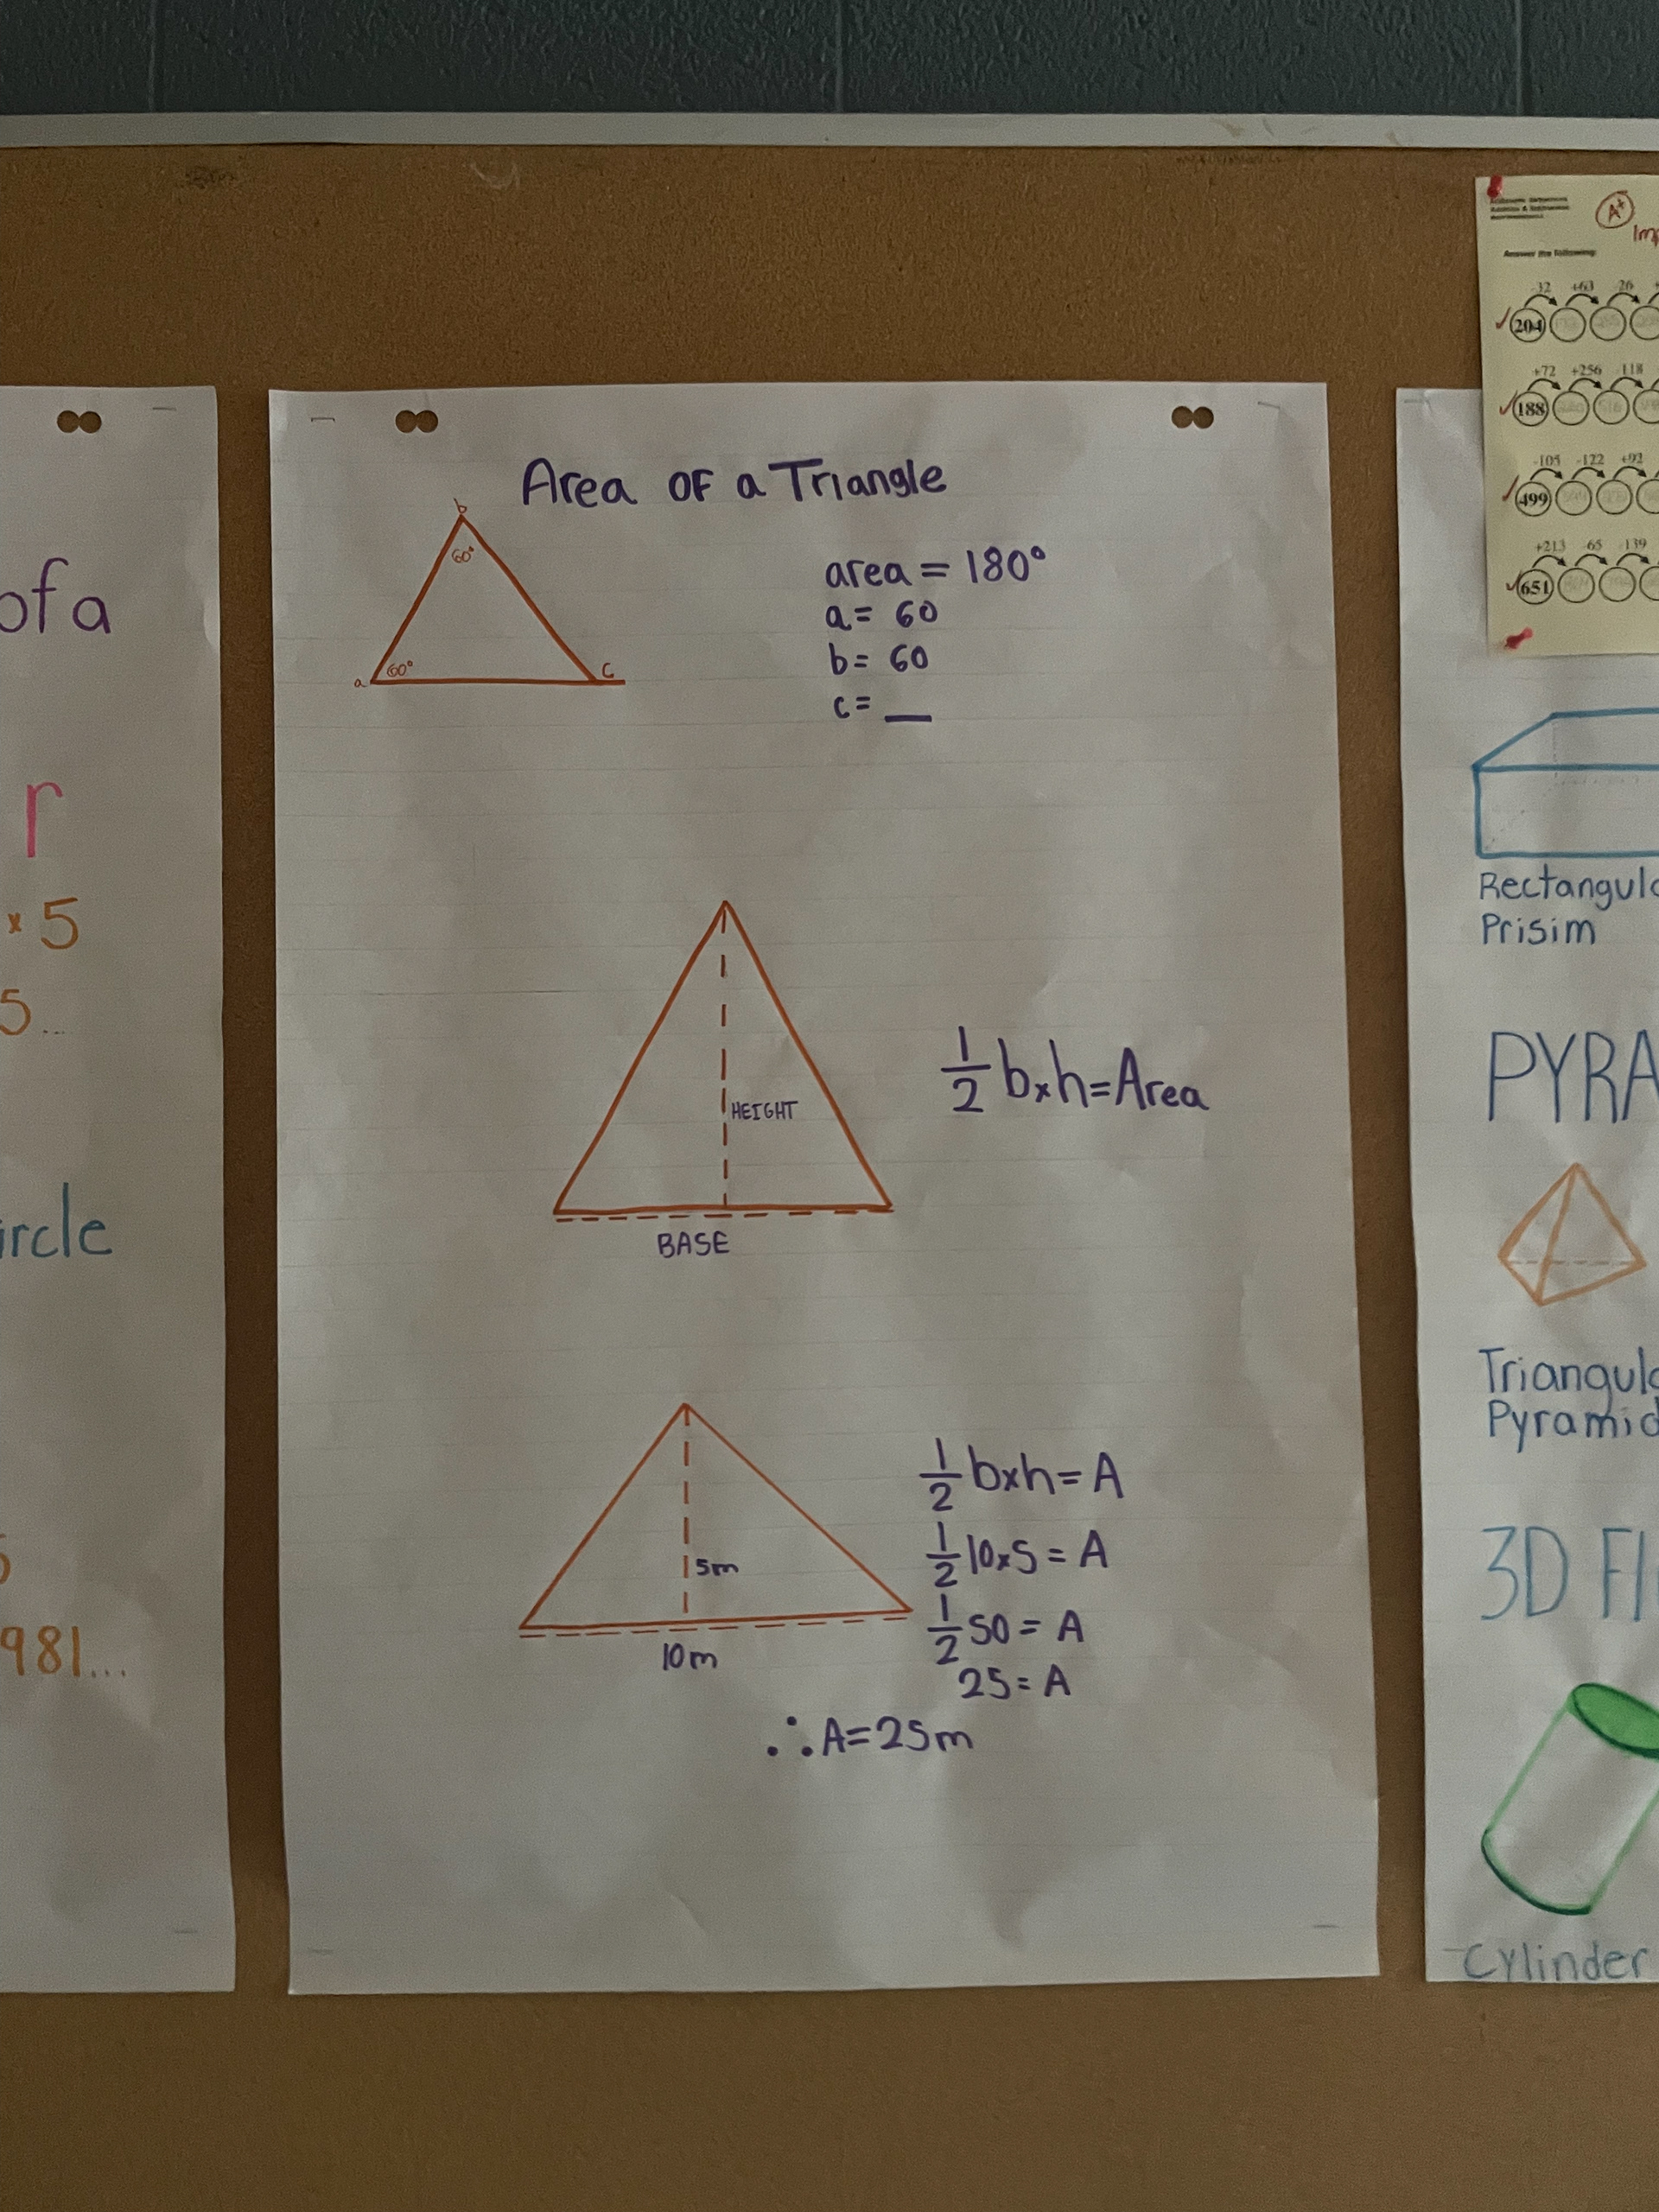 of a
r
× 5
5...
ircle
5
981...
Area OF a Triangle
b
60°
a
60°
c
area = 180°
a = 60
b = 60
c = __
HEIGHT
BASE
1/2 b×h = Area
5m
10m
1/2 b×h = A
1/2 10×5 = A
1/2 50 = A
25 = A
∴ A = 25m
A+
Answer the following:
-32 +63 -26
204
+72 +256 -118
188
-105 -122 +92
499
+213 -65 -139
651
Rectangula
Prisim
PYRA
Triangula
Pyramid
3D FI
Cylinder